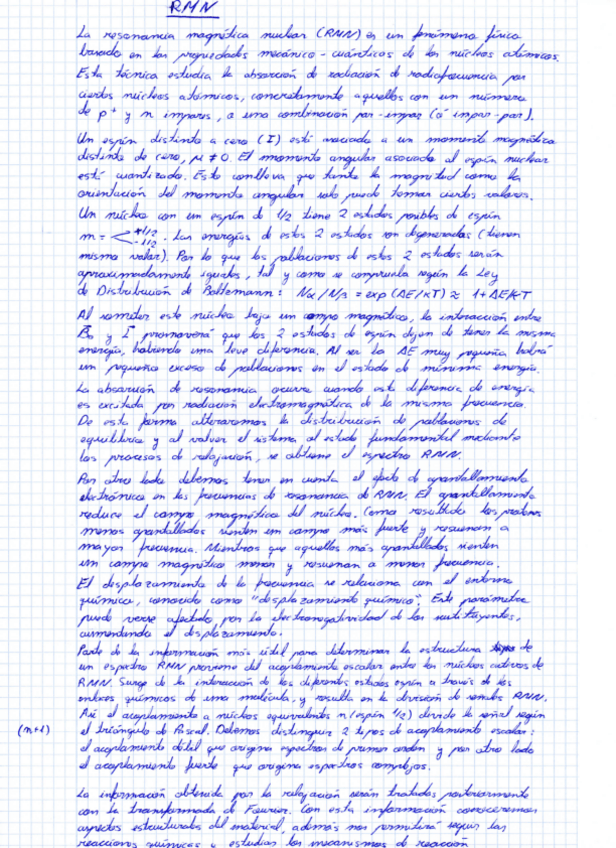 RMN
La resonancia magnética nuclear (RMN) es un fenómeno físico
basado en las propiedades mecánico-cuánticas de los núcleos atómicos.
Esta técnica estudia la absorción de radiación de radiofrecuencia por
ciertos núcleos atómicos, concretamente aquellos con un número
de p+ y n impares, o una combinación par-impar (ó impar-par).
Un espín distinto a cero (I) está asociado a un momento magnético
distinto de cero, μ ≠ 0. El momento angular asociado al espín nuclear
está cuantizado. Esto conlleva que tanto la magnitud como la
orientación del momento angular solo puede tomar ciertos valores.
Un núcleo con un espín de 1/2 tiene 2 estados posibles de espín
m = < +1/2 -1/2 . Las energías de estos 2 estados son degeneradas (tienen
mismo valor). Por lo que las poblaciones de estos 2 estados serán
aproximadamente iguales, tal y como se comprueba según la Ley
de Distribución de Boltzmann: Nα/Nβ = exp (ΔE/KT) ≈ 1+ΔE/KT
Al someter este núcleo bajo un campo magnético, la interacción entre
B0 y I promoverá que los 2 estados de espín dejen de tener la misma
energía, habiendo una leve diferencia. Al ser la ΔE muy pequeña habrá
un pequeño exceso de poblaciones en el estado de mínima energía.
La absorción de resonancia ocurre cuando esta diferencia de energía
es excitada por radiación electromagnética de la misma frecuencia.
De esta forma alteraremos la distribución de poblaciones de
equilibrio y al volver el sistema al estado fundamental mediante
los procesos de relajación, se obtiene el espectro RMN.
Por otro lado debemos tener en cuenta el efecto de apantallamiento
electrónico en las frecuencias de resonancia de RMN. El apantallamiento
reduce el campo magnético del núcleo. Como resultado los protones
menos apantallados sienten un campo más fuerte y resuenan a
mayor frecuencia. Mientras que aquellos más apantallados sienten
un campo magnético menor y resuenan a menor frecuencia.
El desplazamiento de la frecuencia se relaciona con el entorno
químico, conocido como "desplazamiento químico". Este parámetro
puede verse afectado por la electronegatividad de los sustituyentes,
aumentando el desplazamiento.
Parte de la información más útil para determinar la estructura de
un espectro RMN proviene del acoplamiento escalar entre los núcleos activos de
RMN. Surge de la interacción de los diferentes estados espín a través de los
enlaces químicos de una molécula, y resulta en la división de señales RMN.
Así el acoplamiento a núcleos equivalentes n (espín 1/2) divide la señal según
(n+1) el triángulo de Pascal. Debemos distinguir 2 tipos de acoplamiento escalar:
el acoplamiento débil que origina espectros de primer orden y por otro lado
el acoplamiento fuerte que origina espectros complejos.
La información obtenida por la relajación serán tratados posteriormente
con la transformada de Fourier. Con esta información conoceremos
aspectos estructurales del material, además nos permitirá seguir las
reacciones químicas y estudiar los mecanismos de reacción